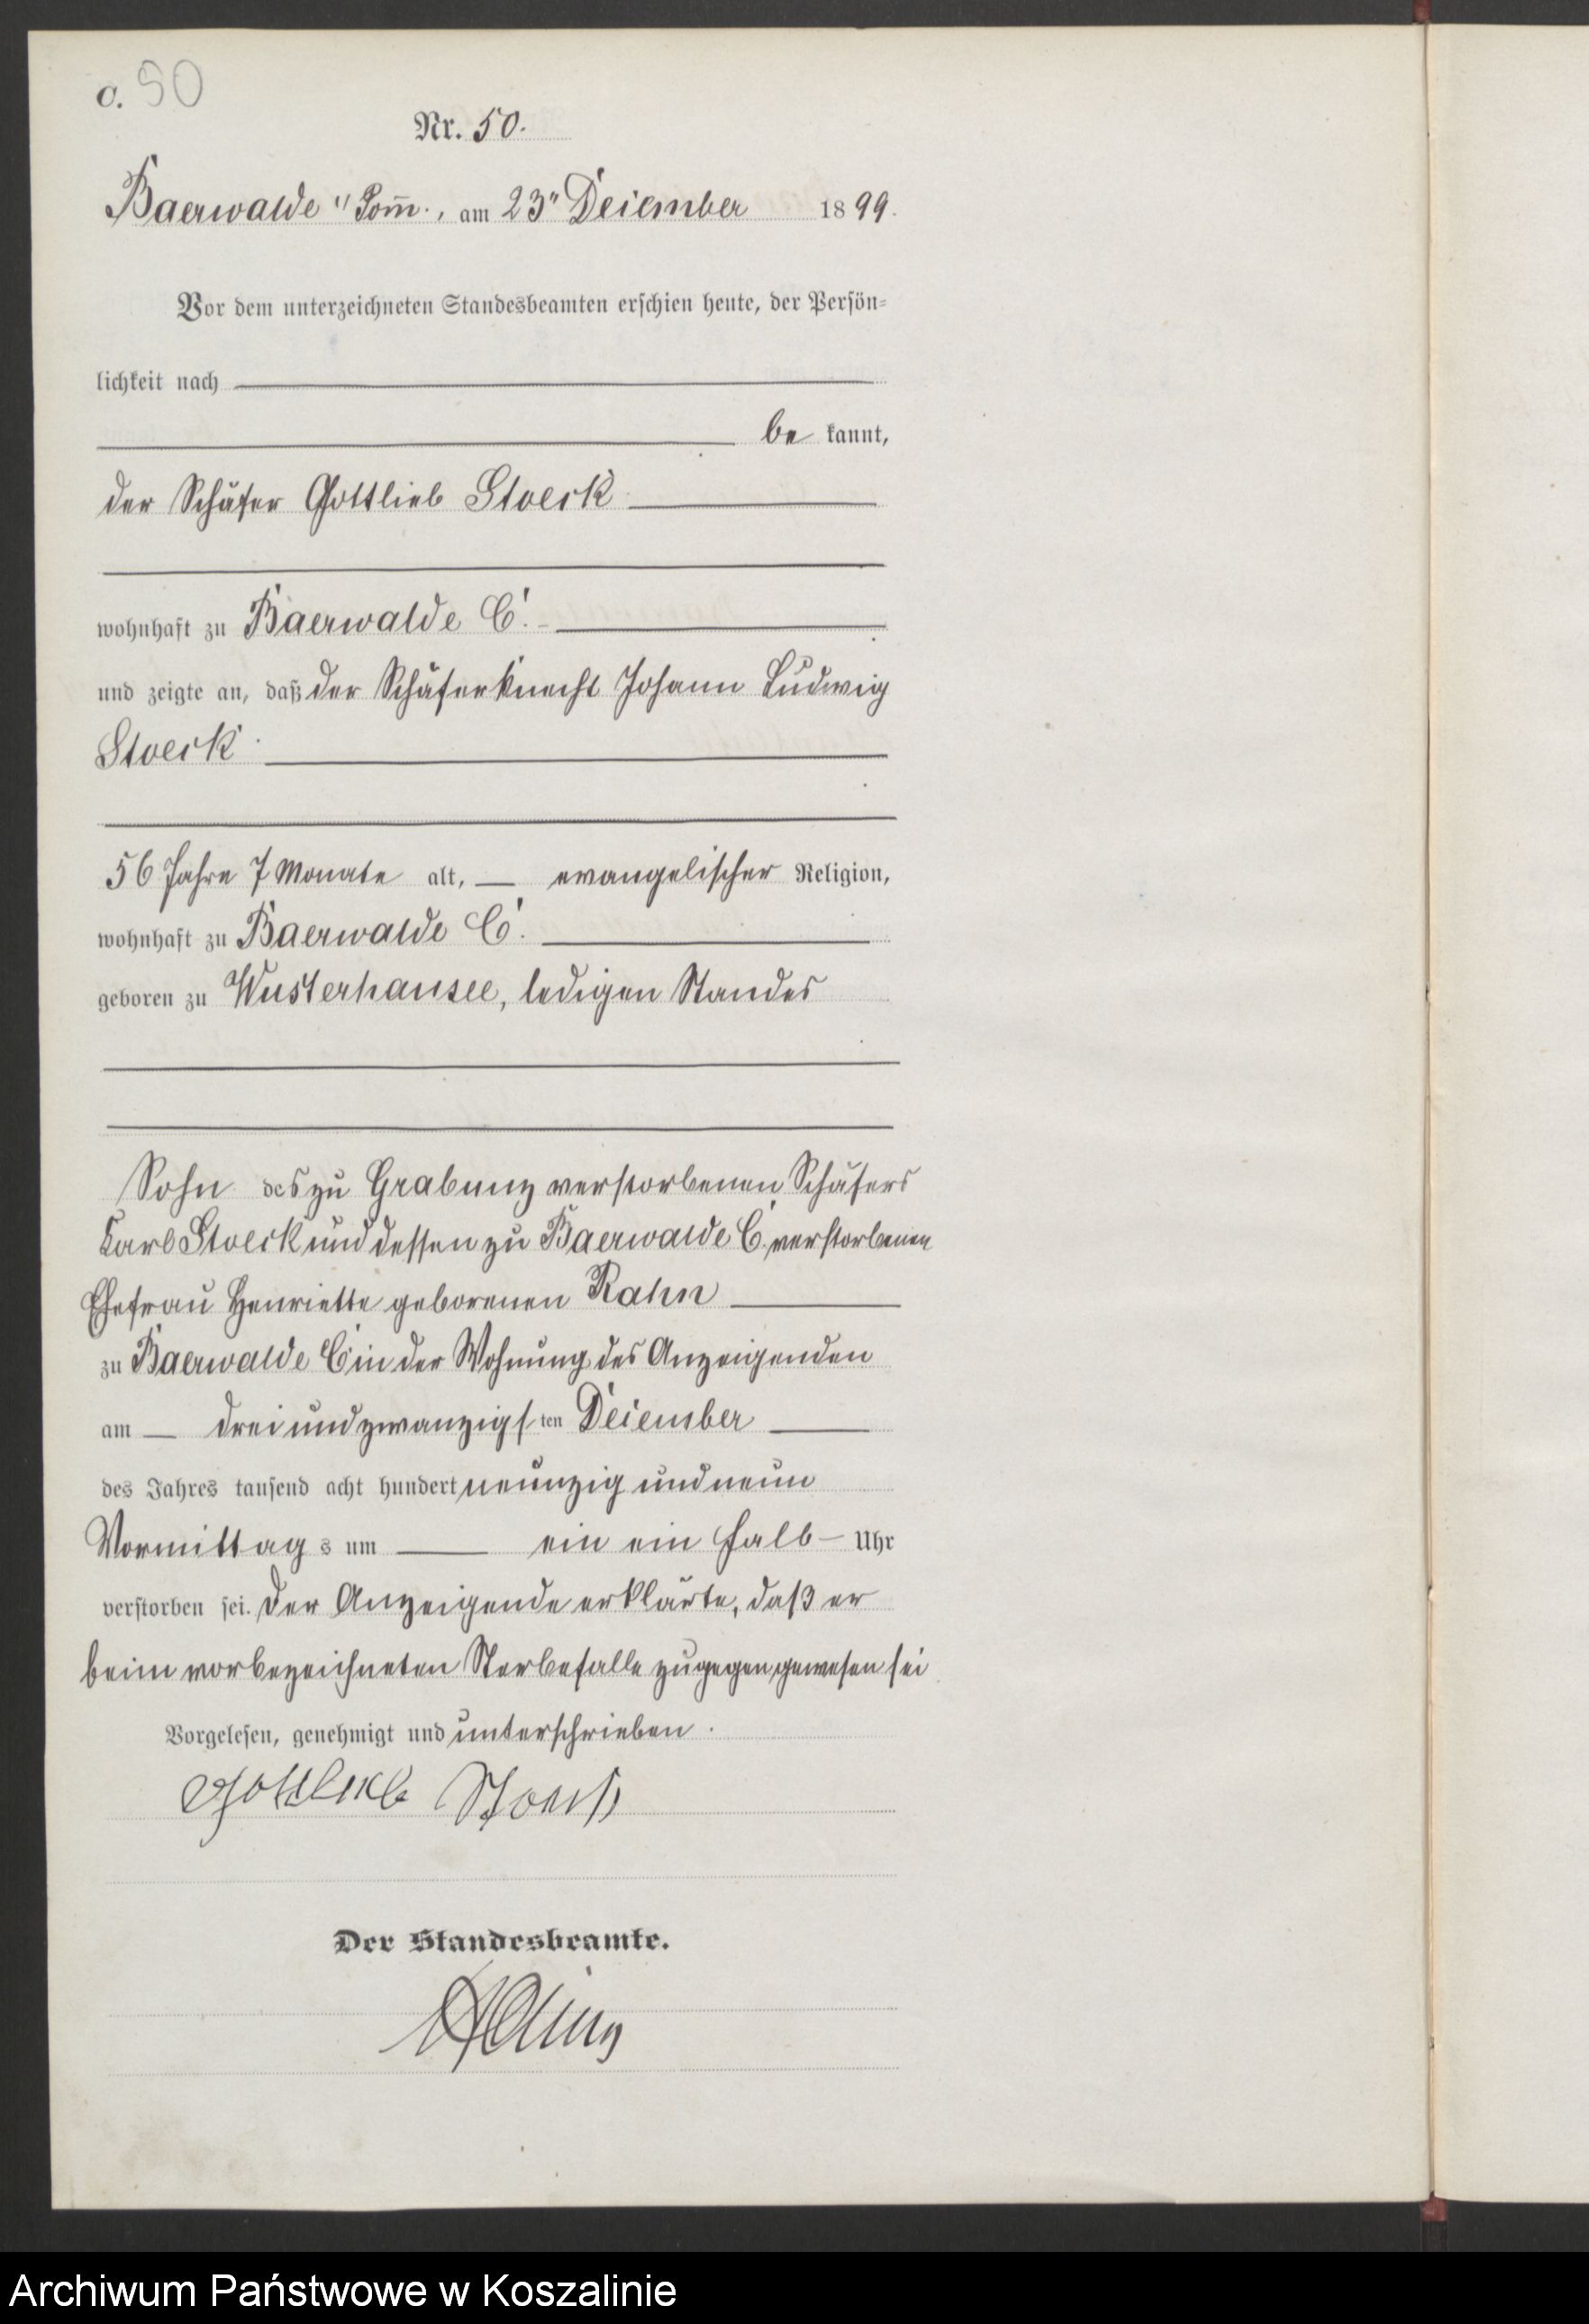 C. 50
Nr. 50.
Baerwalde i/ Pom̅., am 23ten December 1899.
Vor dem unterzeichneten Standesbeamten erschien heute, der Persön-
lichkeit nach
be kannt,
der Schäfer Gottlieb Stoeck
wohnhaft zu Baerwalde C.
und zeigte an, daß der Schäferknecht Johann Ludwig
Stoeck
56 Jahre 7 Monate alt, evangelischer Religion,
wohnhaft zu Baerwalde C.
geboren zu Wusterhansee, ledigen Standes
Sohn des zu Grabunz verstorbenen Schäfers
Karl Stoeck und dessen zu Baerwalde C. verstorbenen
Ehefrau Henriette geborenen Rahn
zu Baerwalde C in der Wohnung des Anzeigenden
am drei und zwanzigsten December
des Jahres tausend acht hundert neunzig und neun
Vormittags um ein ein halb Uhr
verstorben sei. Der Anzeigende erklärte, daß er
beim vorbezeichneten Sterbefalle zugegen gewesen sei
Vorgelesen, genehmigt und unterschrieben.
Gottlieb Stoeck
Der Standesbeamte.
Archiwum Państwowe w Koszalinie